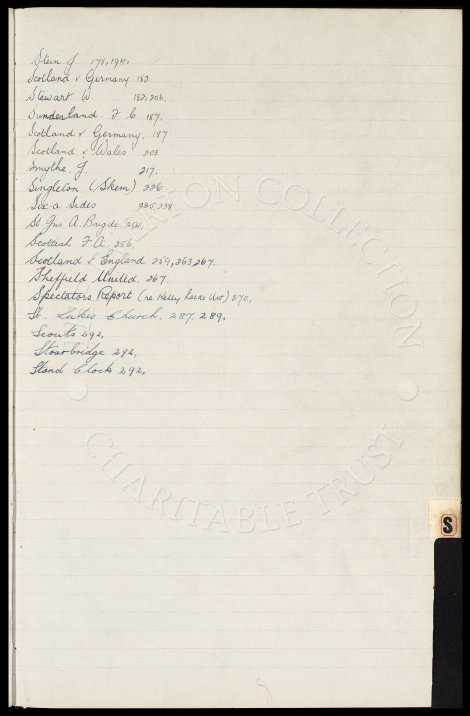 Stein J. 178, 194.
Scotland v Germany 182
Stewart W. 182, 206.
Sunderland. F. C. 187.
Scotland v Germany. 187
Scotland v Wales 203
Smythe. J. 217.
Singleton (Skem) 226
Six-a Sides 235, 238
St. Jns A. Brigde.
Scottish F.A. 256.
Scotland v England 259, 263, 267.
Sheffield United. 267.
Spectators Report (re Kelly 270.
St. Lukes Church. 287. 289.
Scouts 292,
Stourbridge 292,
Stand Clock 292,
S
COLLECTION
CHARITABLE TRUST